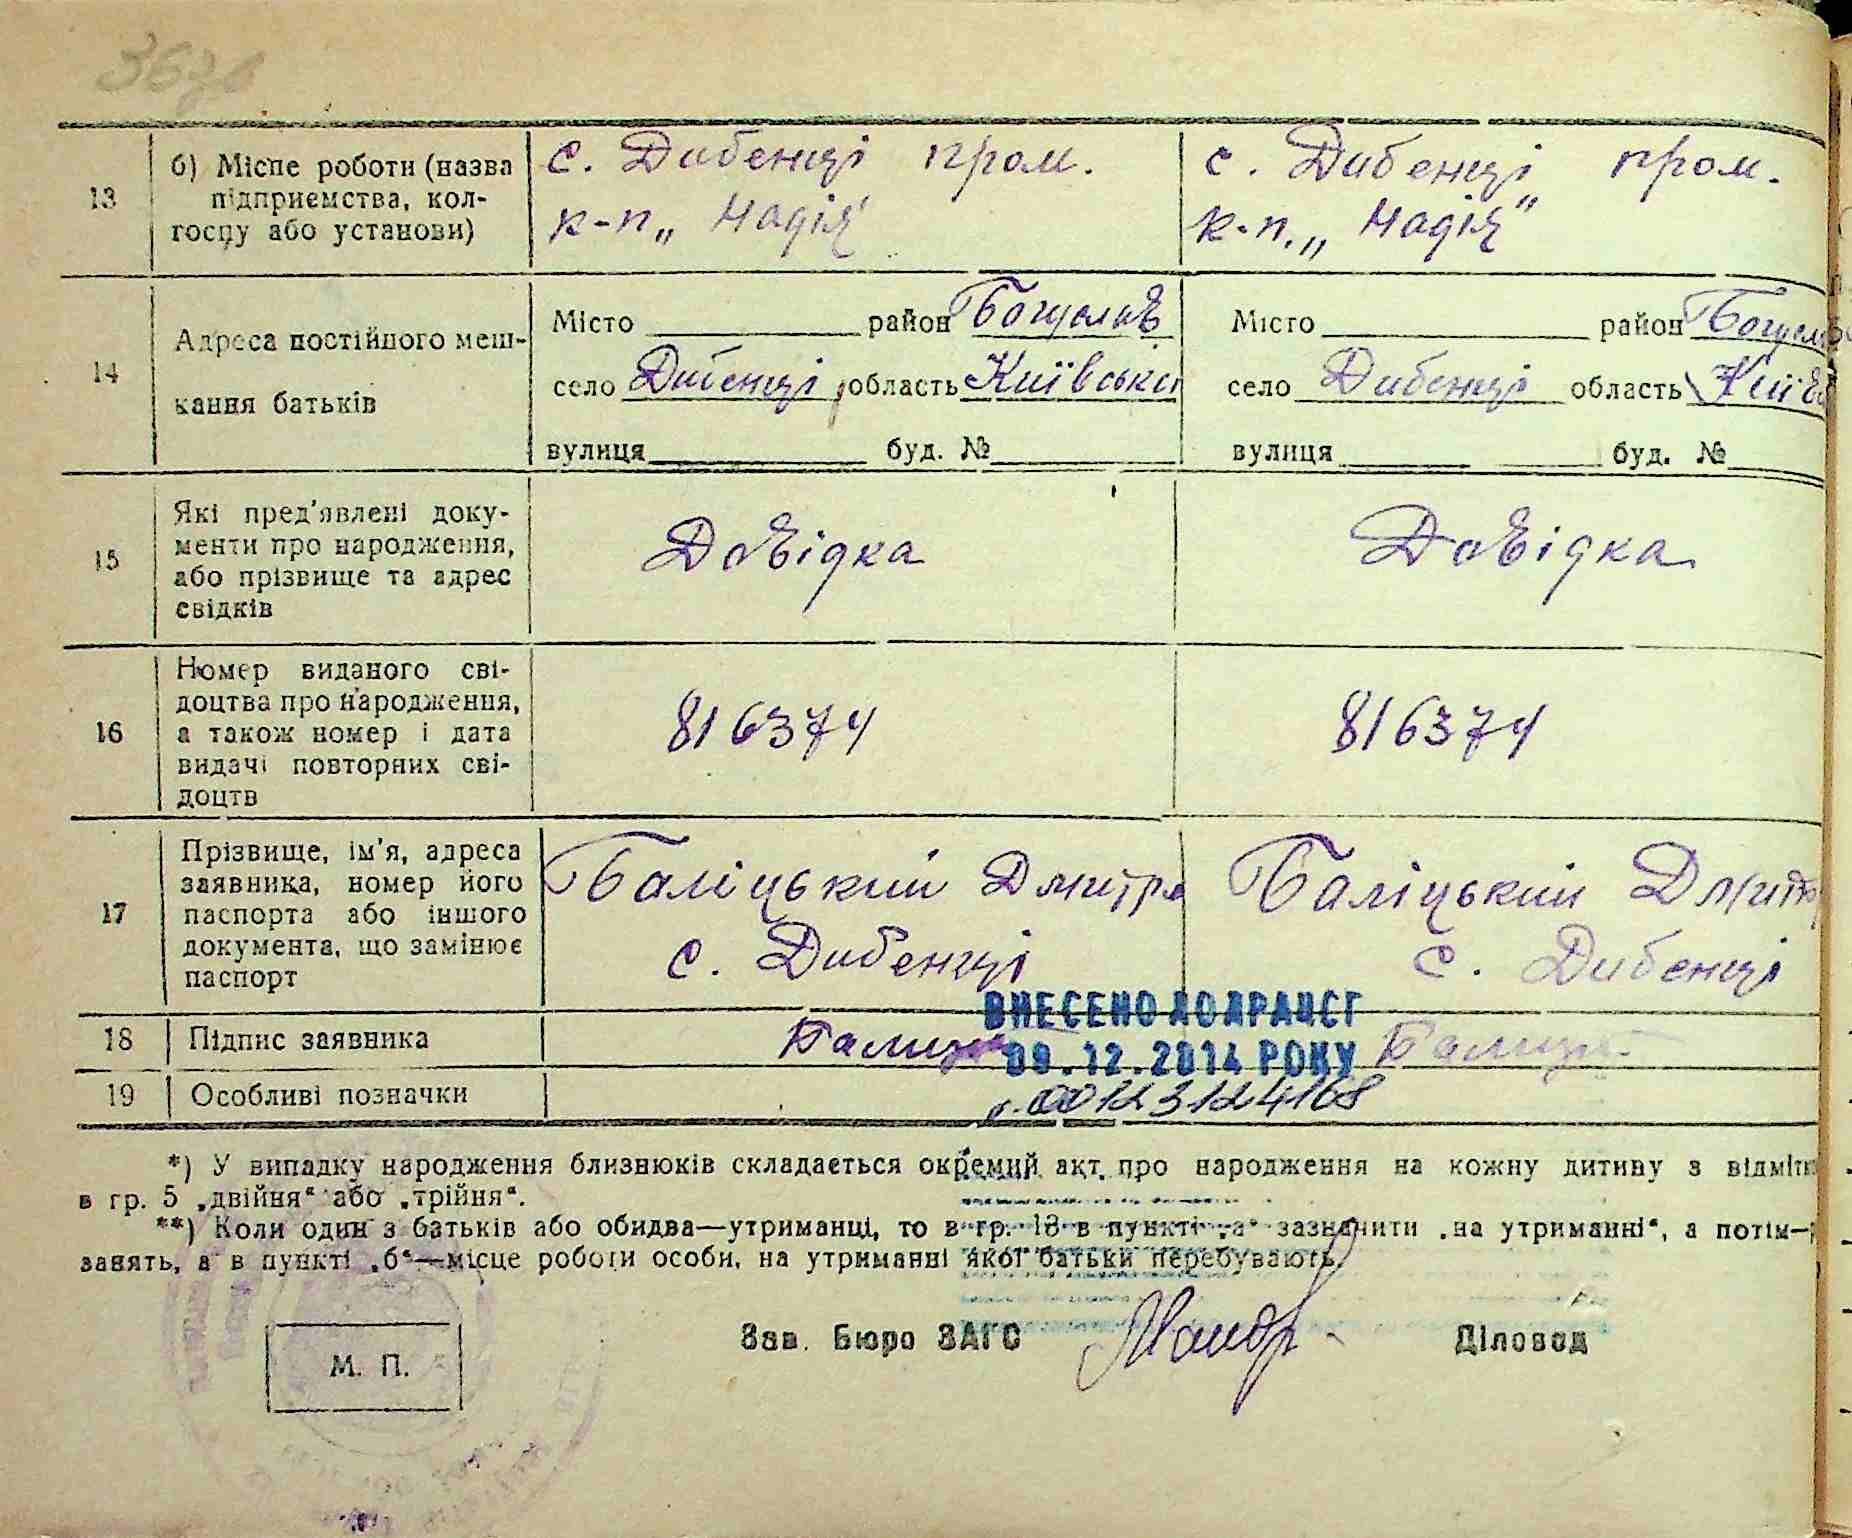 367
13
б) Місце роботи (назва підприємства, колгоспу або установи)
с. Дибенці пром.
к-п „Надія"
с. Дибенці пром.
к-п. „Надія"
14
Адреса постійного мешкання батьків
Місто район Богуслав
село Дибенці область Київська
вулиця буд. №
Місто район Богуслав
село Дибенці область Київ
вулиця буд. №
15
Які пред'явлені документи про народження, або прізвище та адрес свідків
Довідка
Довідка
16
Номер виданого свідоцтва про народження, а також номер і дата видачі повторних свідоцтв
816374
816374
17
Прізвище, ім'я, адреса заявника, номер його паспорта або іншого документа, що замінює паспорт
Баліцький Дмитро
с. Дибенці
Баліцький Дмитр
с. Дибенці
18
Підпис заявника
ВНЕСЕНО ДО ДРАЦСГ
09.12.2014 РОКУ
19
Особливі позначки
00123124168
*) У випадку народження близнюків складається окремий акт про народження на кожну дитину з відмітк
в гр. 5 „двійня“ або „трійня“.
**) Коли один з батьків або обидва—утриманці, то в гр. 13 в пункті „а“ зазначити „на утриманні“, а потім—
занять, а в пункті „б“—місце роботи особи, на утриманні якої батьки перебувають.
М. П.
Зав. Бюро ЗАГС
Діловод